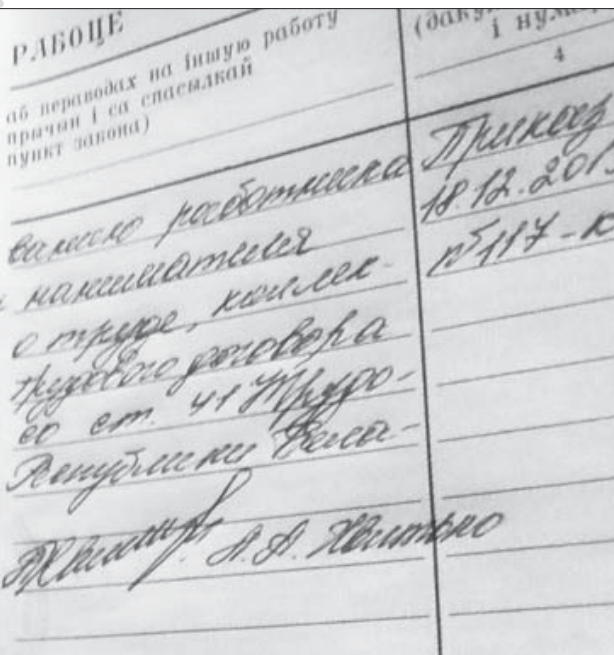 РАБОЦЕ
аб пераводах на іншую работу
прычын і са спасылкай
пункт закона)
(даку
і нума
4
ванию работника
нанимателя
о труде, коллек-
трудового договора
со ст. 41 Трудо-
Республики Бела-
А.А. Хвитько
Приказ
18.12.201
№117-к